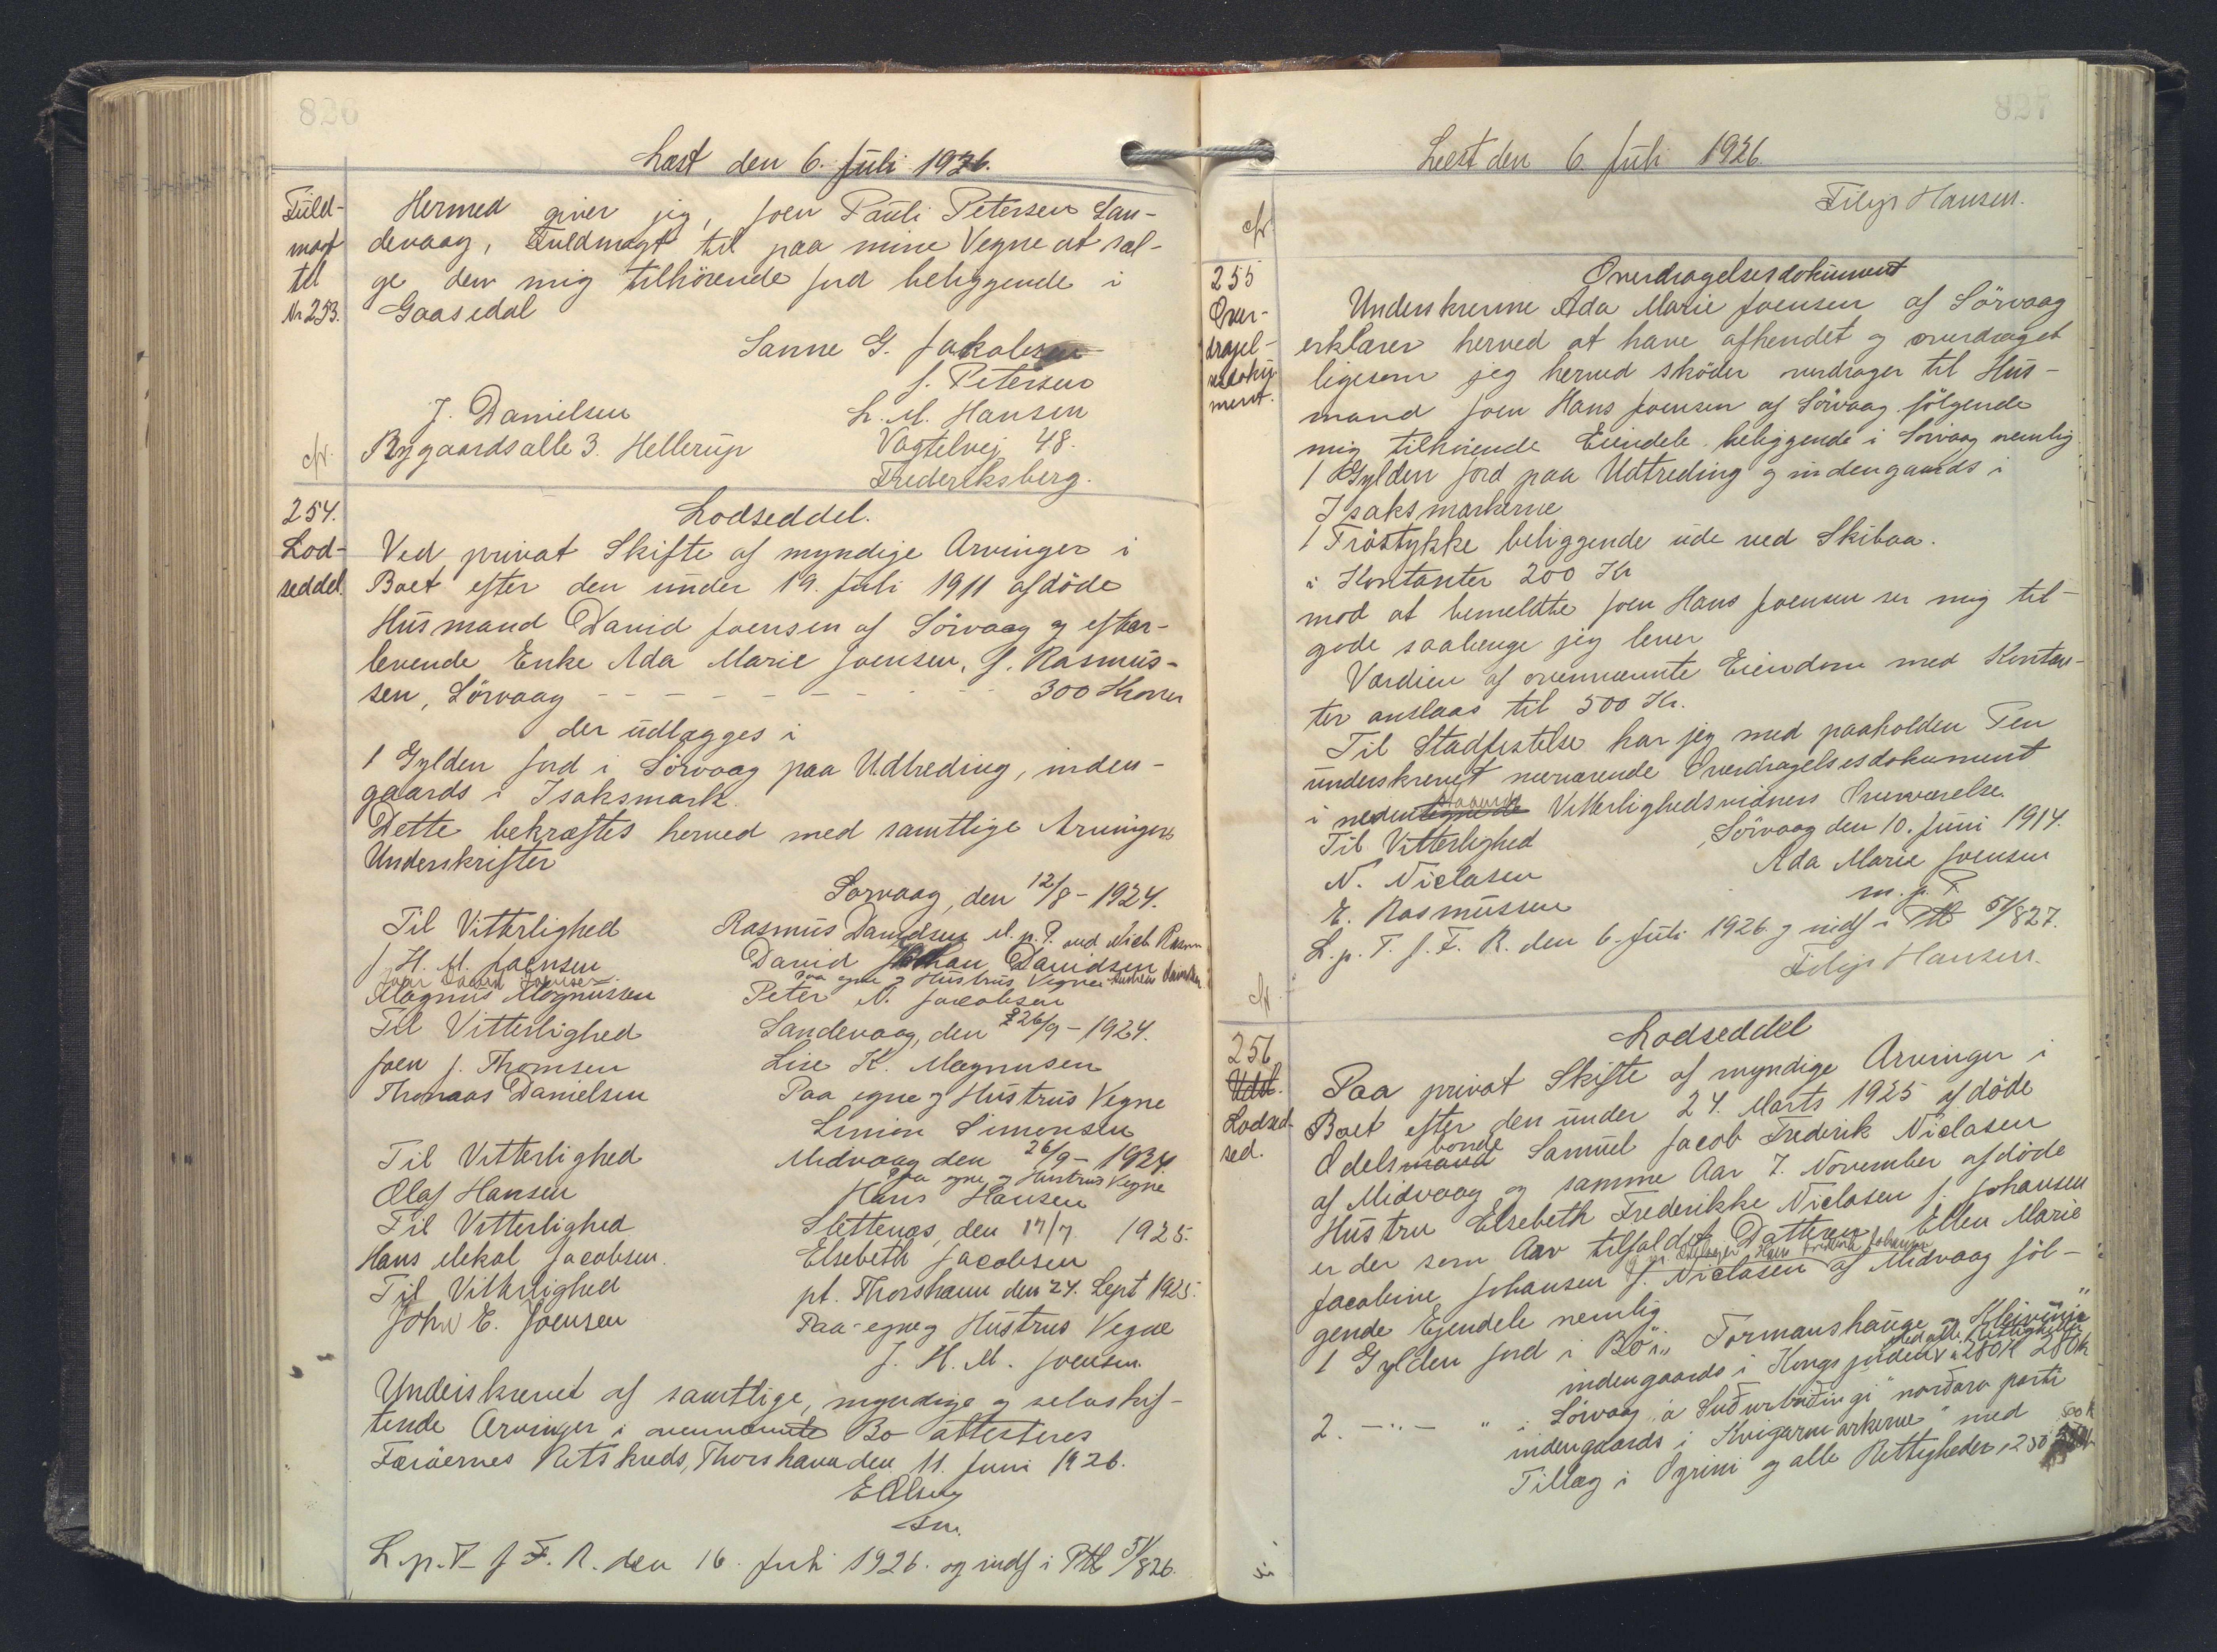 826
Læst den 6. Juli 1926.
Fuld-
magt
til
Nr 253.
Hermed giver jeg, Joen Pauli Petersen San-
devaag, Fuldmagt til paa mine Vegne at sæl-
ge den mig tilhörende Jord beliggende i
Gaasedal
Sanne G. Jakobsen
J. Petersen
J. Danielsen
L. M. Hansen
Rygaardsalle 3. Hellerup
Vagtelvej 48.
Frederiksberg.
254.
Lod-
seddel.
Lodseddel.
Ved privat Skifte af myndige Arvinger i
Boet efter den under 19. Juli 1911 afdöde
Husmand David Joensen af Sörvaag og efter-
levende Enke Ada Marie Joensen, f. Rasmus-
sen, Sörvaag - - - - - - - - - - 300 Kroner
der udlægges i
1 Gylden Jord i Sörvaag paa Udtreding, inden-
gaards i Isaksmark.
Dette bekræftes herved med samtlige Arvingers
Underskrifter
Sorvaag, den 12/8 - 1924.
Til Vitterlighed
Rasmus Davidsen M. p. P. ved Nicl. Rasm
J. H. M. Joensen
David Johan Davidsen
Paa egne og Hustrus Vegne
Magnus Magnussen
Peter N. Jacobsen
Til Vitterlighed
Sandevaag, den 26/9 - 1924.
Joen J. Thomsen
Lise K. Magnusen
Thomas Danielsen
Paa egne og Hustrus Vegne
Simon Simonsen
Til Vitterlighed
Midvaag den 26/9 - 1924.
Paa egne og Hustrus Vegne
Olaf Hansen
Hans Hansen
Til Vitterlighed
Slettenæs, den 17/7 1925.
Hans Mekal Jacobsen.
Elsebeth Jacobsen
Til Vitterlighed
pt. Thorshavn den 24. Sept 1925.
John E. Joensen
Paa egne og Hustrus Vegne
J. H. M. Joensen.
Underskrevet af samtlige, myndige og selvskif-
tende Arvinger i ovennævnte Bo attesteres
Færöernes Retskreds, Thorshavn den 11. Juni 1926.
L. p. T. f. F. R. den 16. Juli 1926. og indf i Ptl 51/826.
827
Læst den 6. Juli 1926.
Filip Hansen.
255
Over-
dragel-
sesdoku-
ment.
Overdragelsesdokument
Underskrevne Ada Marie Joensen af Sörvaag
erklærer herved at have afhendet og overdraget
ligesom jeg herved sköder overdrager til Hus-
mand Joen Hans Joensen af Sörvaag fölgende
mig tilhörende Eiendele beliggende i Sörvaag nemlig
1 Gylden Jord paa Udtreding og indengaards i
Isaksmarkerne
1 Tröstykke beliggende ude ved Skibaa.
i Kontanter 200 Kr
mod at bemeldte Joen Hans Joensen ser mig til-
gode saalænge jeg lever
Værdien af ovennævnte Eiendom med Kontan-
ter anslaas til 500 Kr.
Til Stadfestelse har jeg med paaholden Pen
underskrevet nærværende Overdragelsesdokument
i nedenstaaende Vitterlighedsvidners Overværelse.
Sörvaag den 10. Juni 1914.
Til Vitterlighed
Ada Marie Joensen
N. Niclasen
m. p. P.
E. Rasmussen
L. p. T. f. F. R. den 6. Juli 1926 og indf i Ptl 51/827.
Filip Hansen.
256
Udst.
Lodsed-
sed.
Lodseddel
Paa privat Skifte af myndige Arvinger i
Boet efter den under 24. Marts 1925 afdöde
Odelsmand bonde Samuel Jacob Frederik Niclasen
af Midvaag og samme Aar 7. November afdöde
Hustru Elsebeth Frederikke Niclasen f. Johansen
er der som Arv tilfaldet Datteren Ellen Marie
Jacobine Johansen f. Niclasen af Midvaag föl-
gende Ejendele nemlig
1 Gylden Jord i Bö "Tormanshauge og
med alle Rettigheder
indengaards i Kongsjorden a 280 K 280 K
2. - " - " i Sörvaag "a Suðurbuðingi" norðara parti
indengaards i Kvigarmarkerne" med 500 K
Tillæg i Oyrini og alle Rettigheder, 250